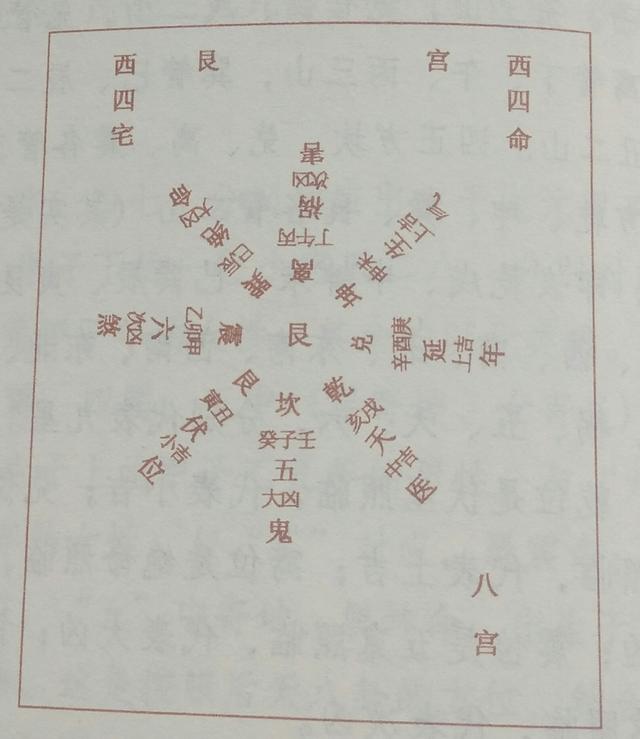 西四宅
艮
宫
西四命
离
丁午丙
祸
次凶
害
坤
未申
生
上吉
气
兑
辛酉庚
延
上吉
年
乾
亥戌
天
中吉
医
坎
癸子壬
五
大凶
鬼
艮
寅丑
伏
小吉
位
震
乙卯甲
六
次凶
煞
巽
巳辰
绝
大凶
命
艮
八
宫